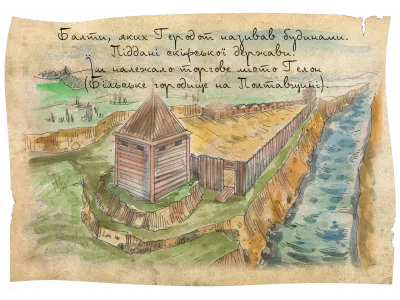 Балти, яких Геродот називав будинами.
Піддані скіфської держави.
Їм належало торгове місто Гелон
(Більське городище на Полтавщині).